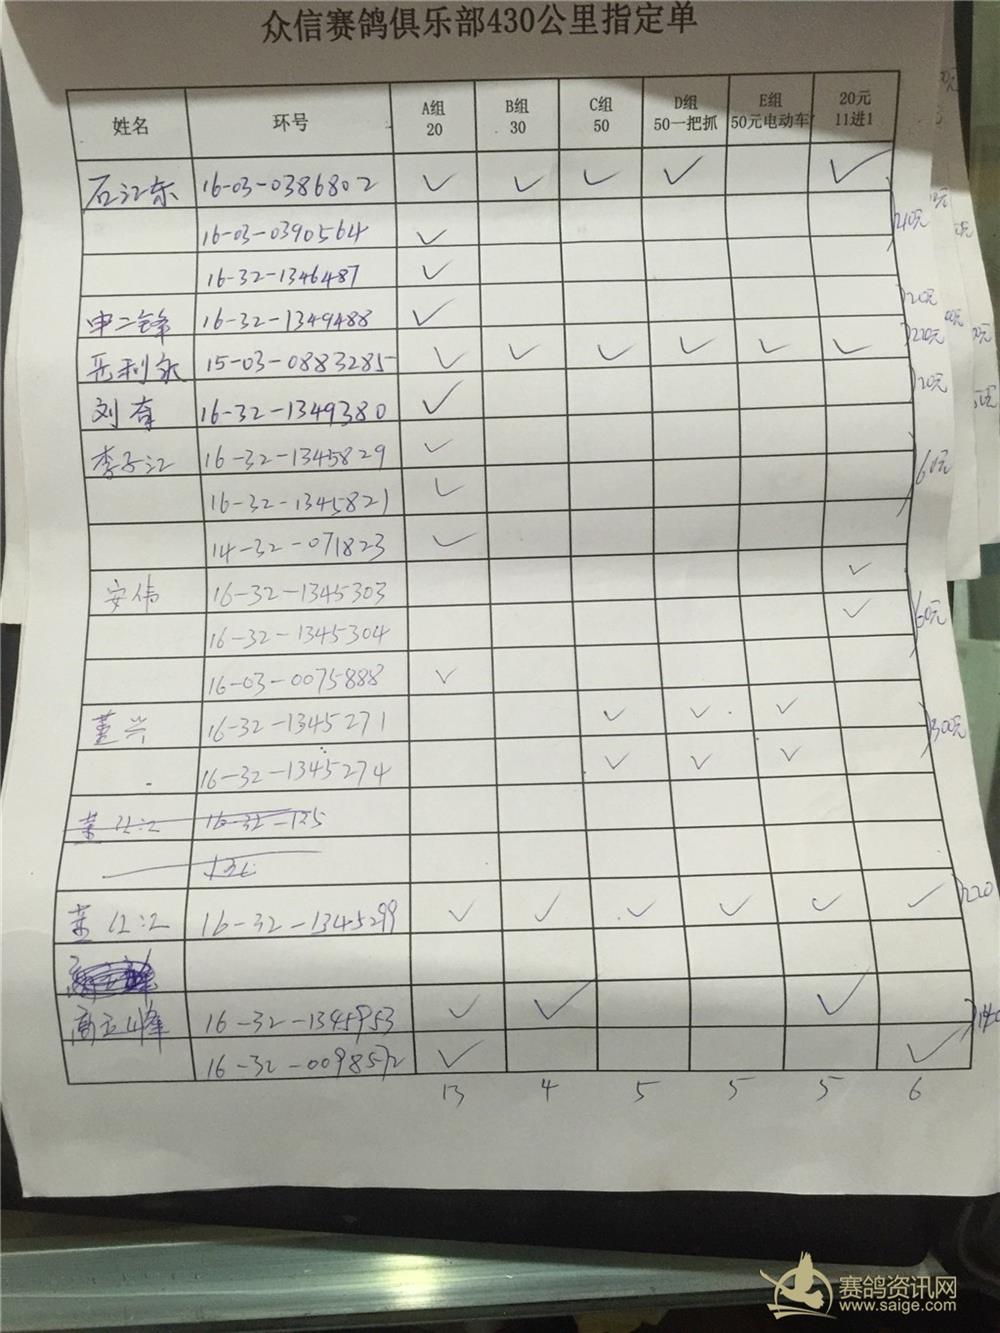 众信赛鸽俱乐部430公里指定单
姓名 环号 A组 20 B组 30 C组 50 D组 50一把抓 E组 50元电动车 20元 11进1
石江东 16-03-0386802 ✓ ✓ ✓ ✓ ✓
16-03-0390564 ✓ 210元
16-32-1346487 ✓
申二锋 16-32-1349488 ✓ 20元
15-03-0883285 ✓ ✓ ✓ ✓ ✓ ✓ 220元
刘奋 16-32-1349380 ✓ 20元
李子江 16-32-1345829 ✓
16-32-1345821 ✓ 60元
14-32-071823 ✓
安伟 16-32-1345303 ✓
16-32-1345304 ✓ 60元
16-03-0075888 ✓
董兴 16-32-1345271 ✓ ✓ ✓ 300元
16-32-1345274 ✓ ✓ ✓
16-32-135
董江江 16-32-1345299 ✓ ✓ ✓ ✓ ✓ ✓ 220
高玉峰 16-32-1345953 ✓ ✓ ✓ 140
16-32-0098572 ✓ ✓
13 4 5 5 5 6
赛鸽资讯网
www.saige.com